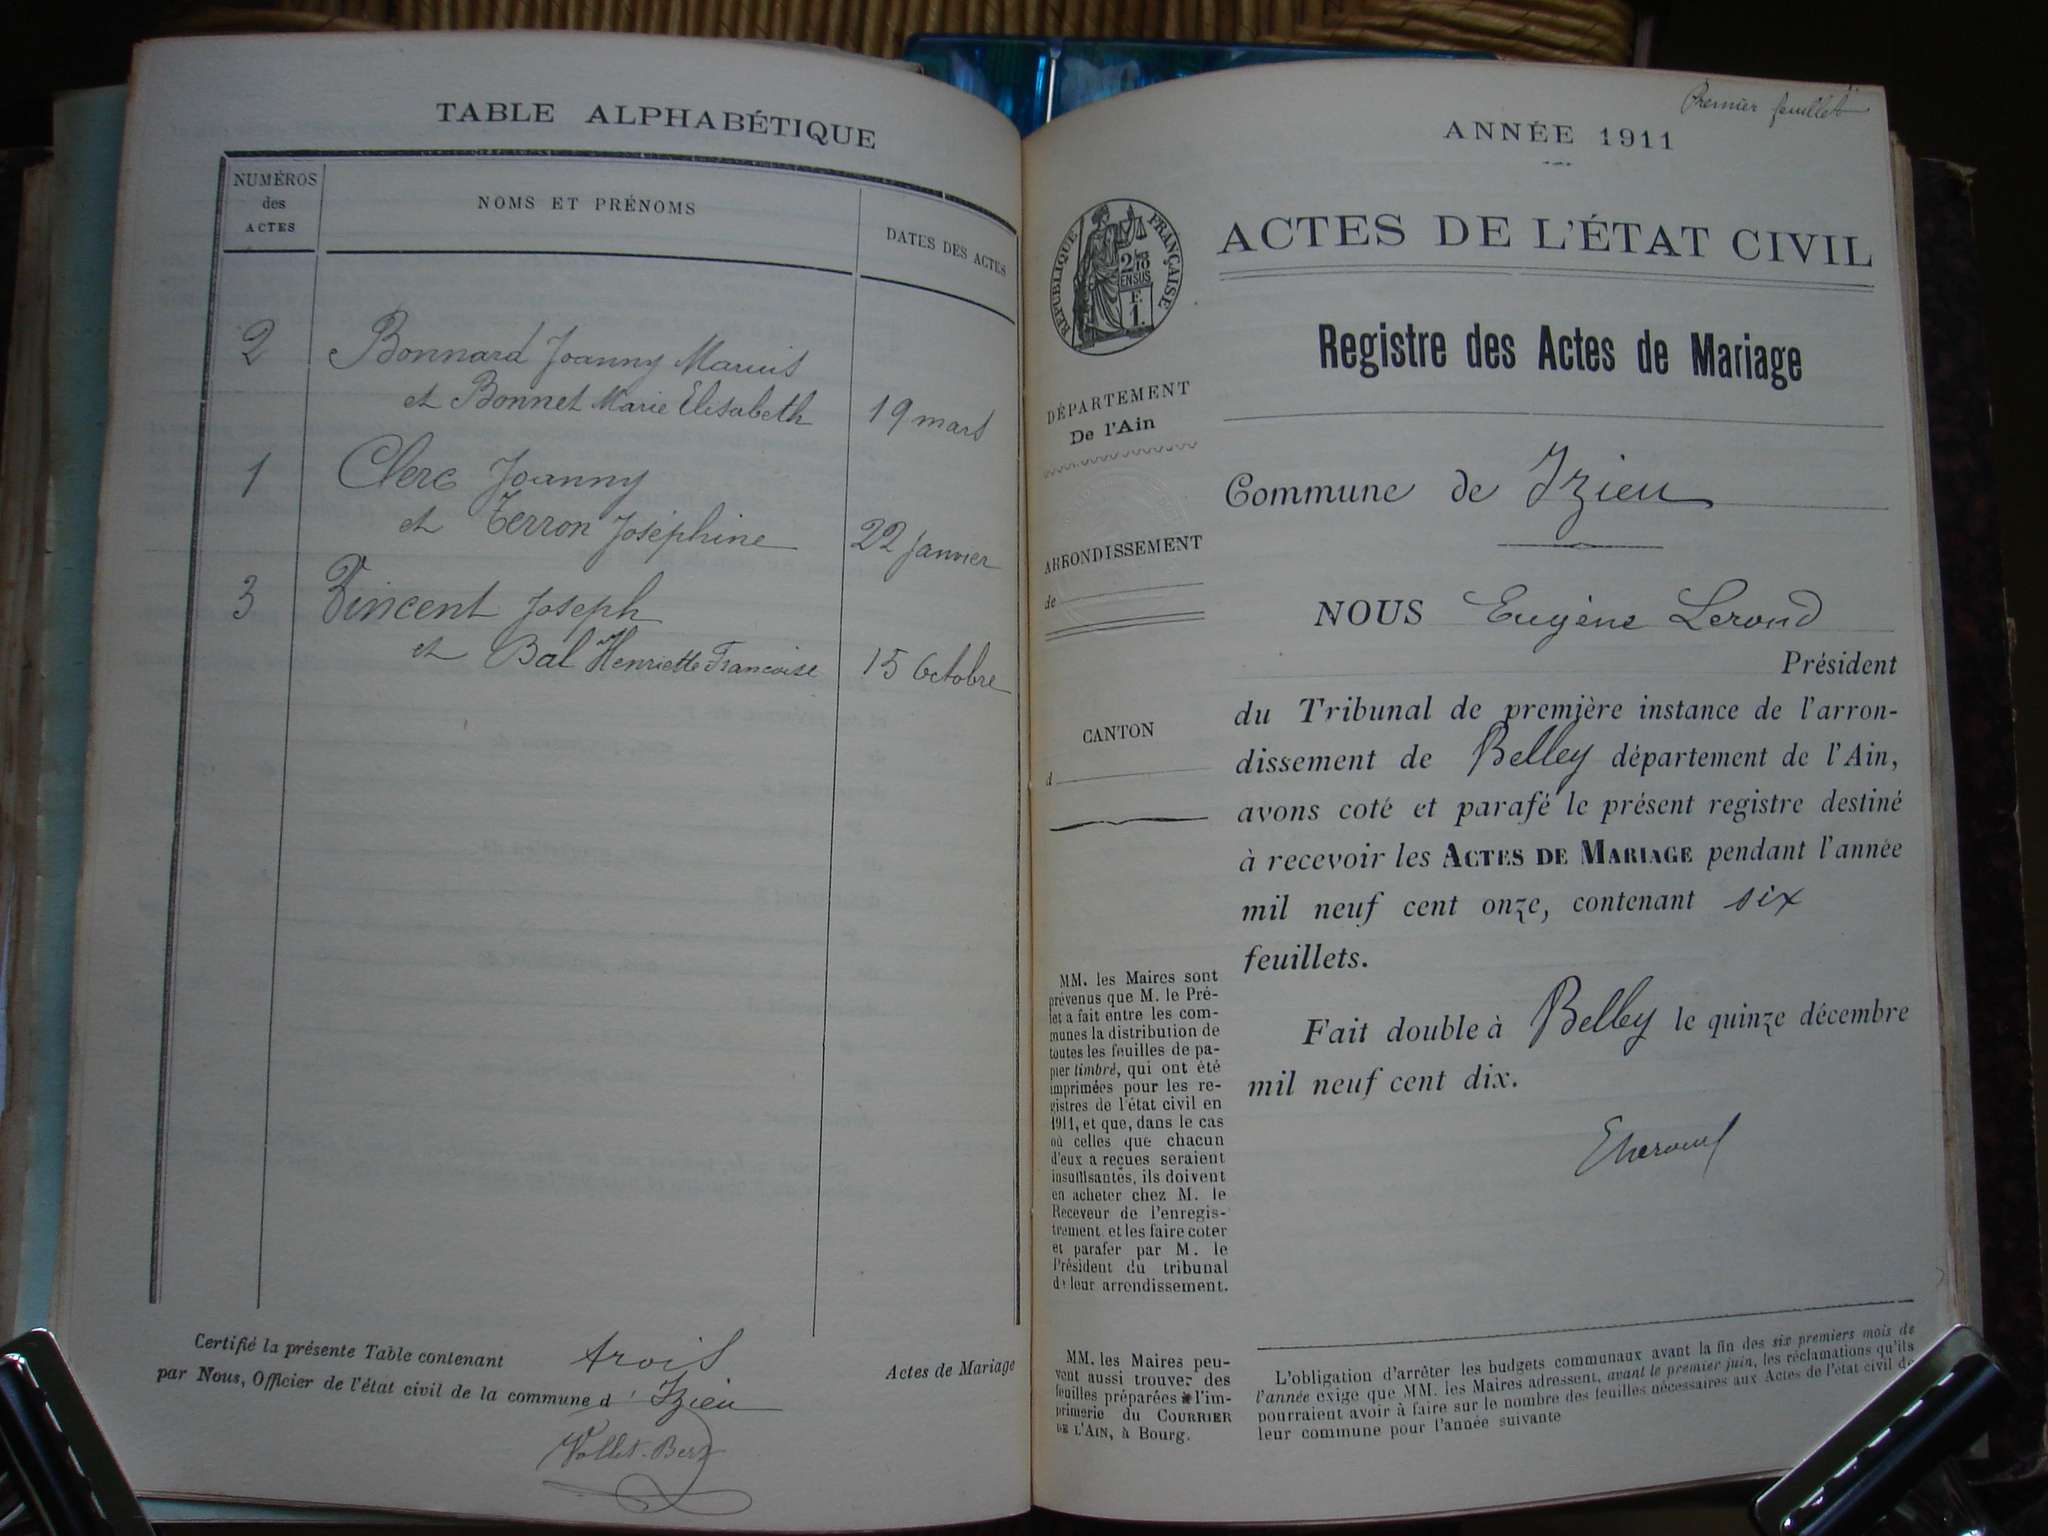 TABLE ALPHABÉTIQUE
NUMÉROS
des
ACTES
NOMS ET PRÉNOMS
DATES DES ACTES
2 Bonnard Joanny Marius
et Bonnet Marie Elisabeth 19 mars
1 Clerc Joanny
et Terron Joséphine 22 Janvier
3 Vincent Joseph
et Bal Henriette Francoise 15 Octobre
Certifié la présente Table contenant trois Actes de Mariage
par Nous, Officier de l'état civil de la commune d' Izieu
Premier feuillet
ANNÉE 1911
RÉPUBLIQUE FRANÇAISE
ACTES DE L'ÉTAT CIVIL
Registre des Actes de Mariage
DÉPARTEMENT
De l'Ain
ARRONDISSEMENT
de
CANTON
d
MM. les Maires sont
prévenus que M. le Pré-
fet a fait entre les com-
munes la distribution de
toutes les feuilles de pa-
pier timbré, qui ont été
imprimées pour les re-
gistres de l'état civil en
1911, et que, dans le cas
où celles que chacun
d'eux a reçues seraient
insuffisantes, ils doivent
en acheter chez M. le
Receveur de l'enregis-
trement et les faire coter
et parafer par M. le
Président du tribunal
de leur arrondissement.
MM. les Maires peu-
vent aussi trouver des
feuilles préparées à l'im-
primerie du COURRIER
DE L'AIN, à Bourg.
Commune de Izieu
NOUS Eugène Lerond
Président
du Tribunal de première instance de l'arron-
dissement de Belley département de l'Ain,
avons coté et parafé le présent registre destiné
à recevoir les ACTES DE MARIAGE pendant l'année
mil neuf cent onze, contenant six
feuillets.
Fait double à Belley le quinze décembre
mil neuf cent dix.
L'obligation d'arrêter les budgets communaux avant la fin des six premiers mois de
l'année exige que MM. les Maires adressent, avant le premier juin, les réclamations qu'ils
pourraient avoir à faire sur le nombre des feuilles nécessaires aux Actes de l'état civil de
leur commune pour l'année suivante